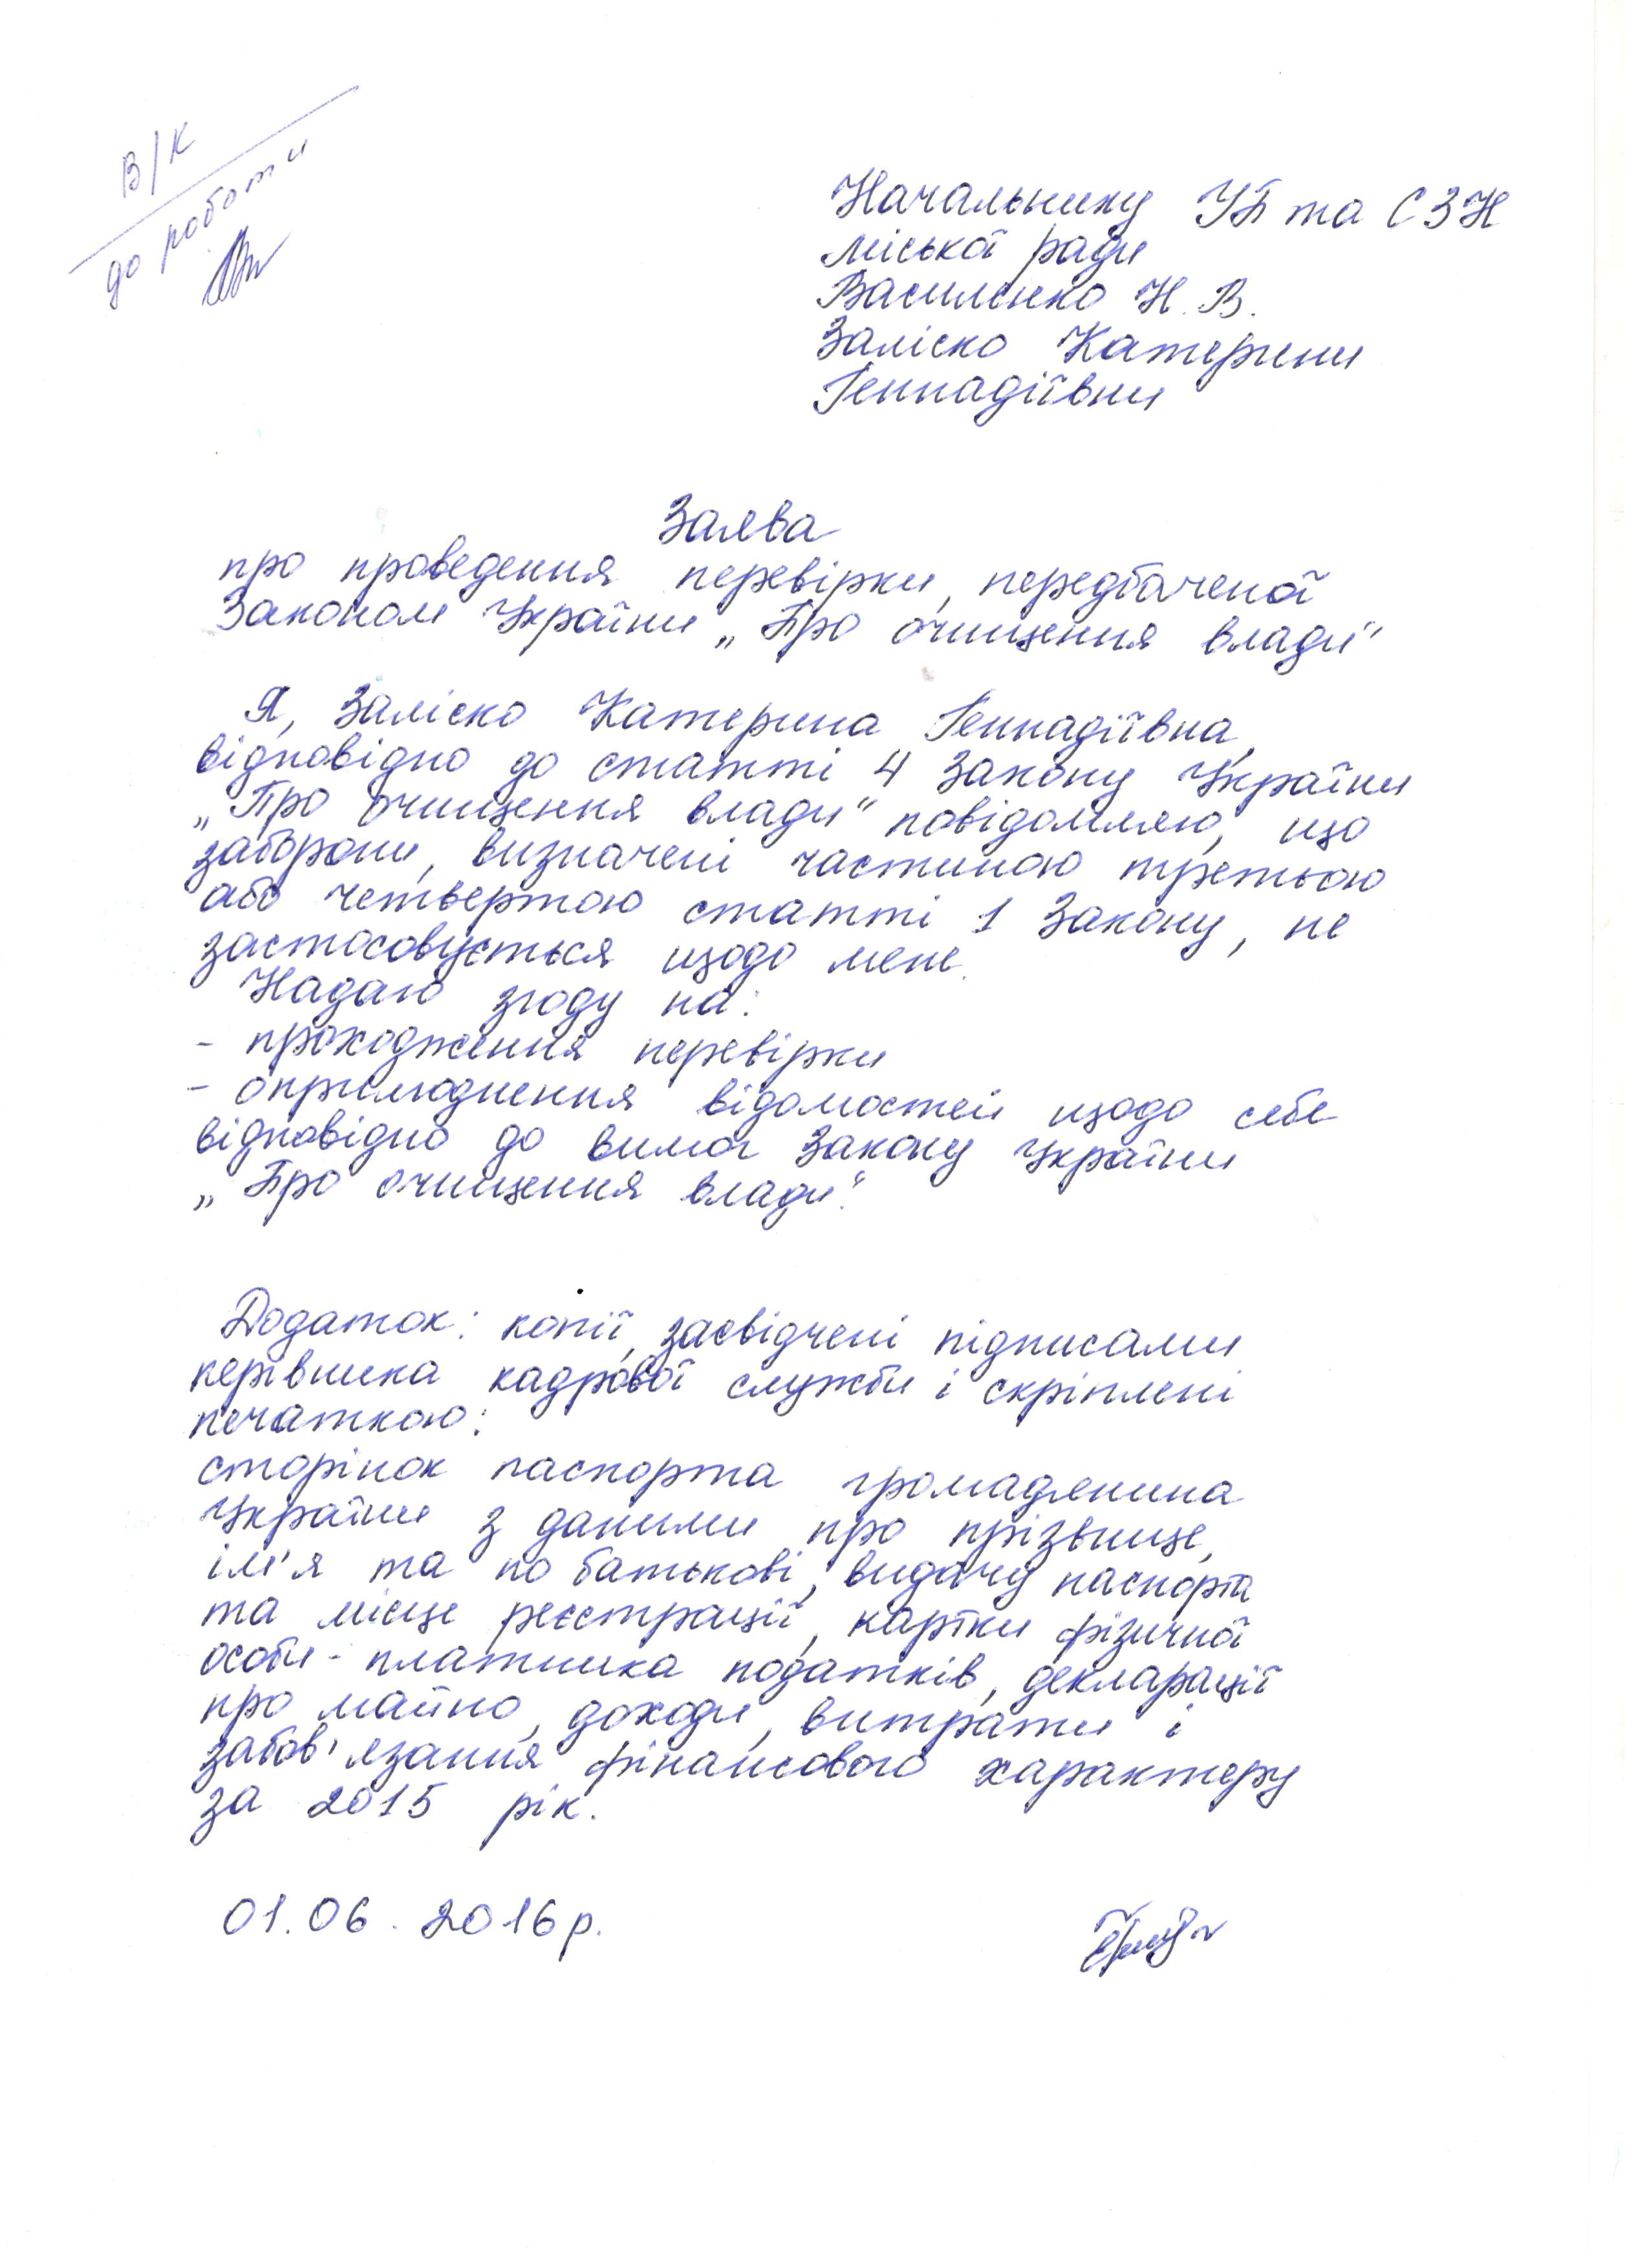 В/К
до роботи
Начальнику УП та СЗН
міської ради
Василенко Н. В.
Заліско Катерини
Геннадіївни
Заява
про проведення перевірки, передбаченої
Законом України „Про очищення влади"
Я, Заліско Катерина Геннадіївна,
відповідно до статті 4 Закону України
„Про очищення влади" повідомляю, що
заборони, визначені частиною третьою
або четвертою статті 1 Закону, не
застосовується щодо мене.
Надаю згоду на:
- проходження перевірки
- оприлюднення відомостей щодо себе
відповідно до вимог Закону України
„Про очищення влади".
Додаток: копії, засвідчені підписами
керівника кадрової служби і скріплені
печаткою:
сторінок паспорта громадянина
України з даними про прізвище,
ім'я та по батькові, видачу паспорта
та місце реєстрації, картки фізичної
особи - платника податків, декларації
про майно, доходи, витрати і
забов'язання фінансового характеру
за 2015 рік.
01.06.2016р.